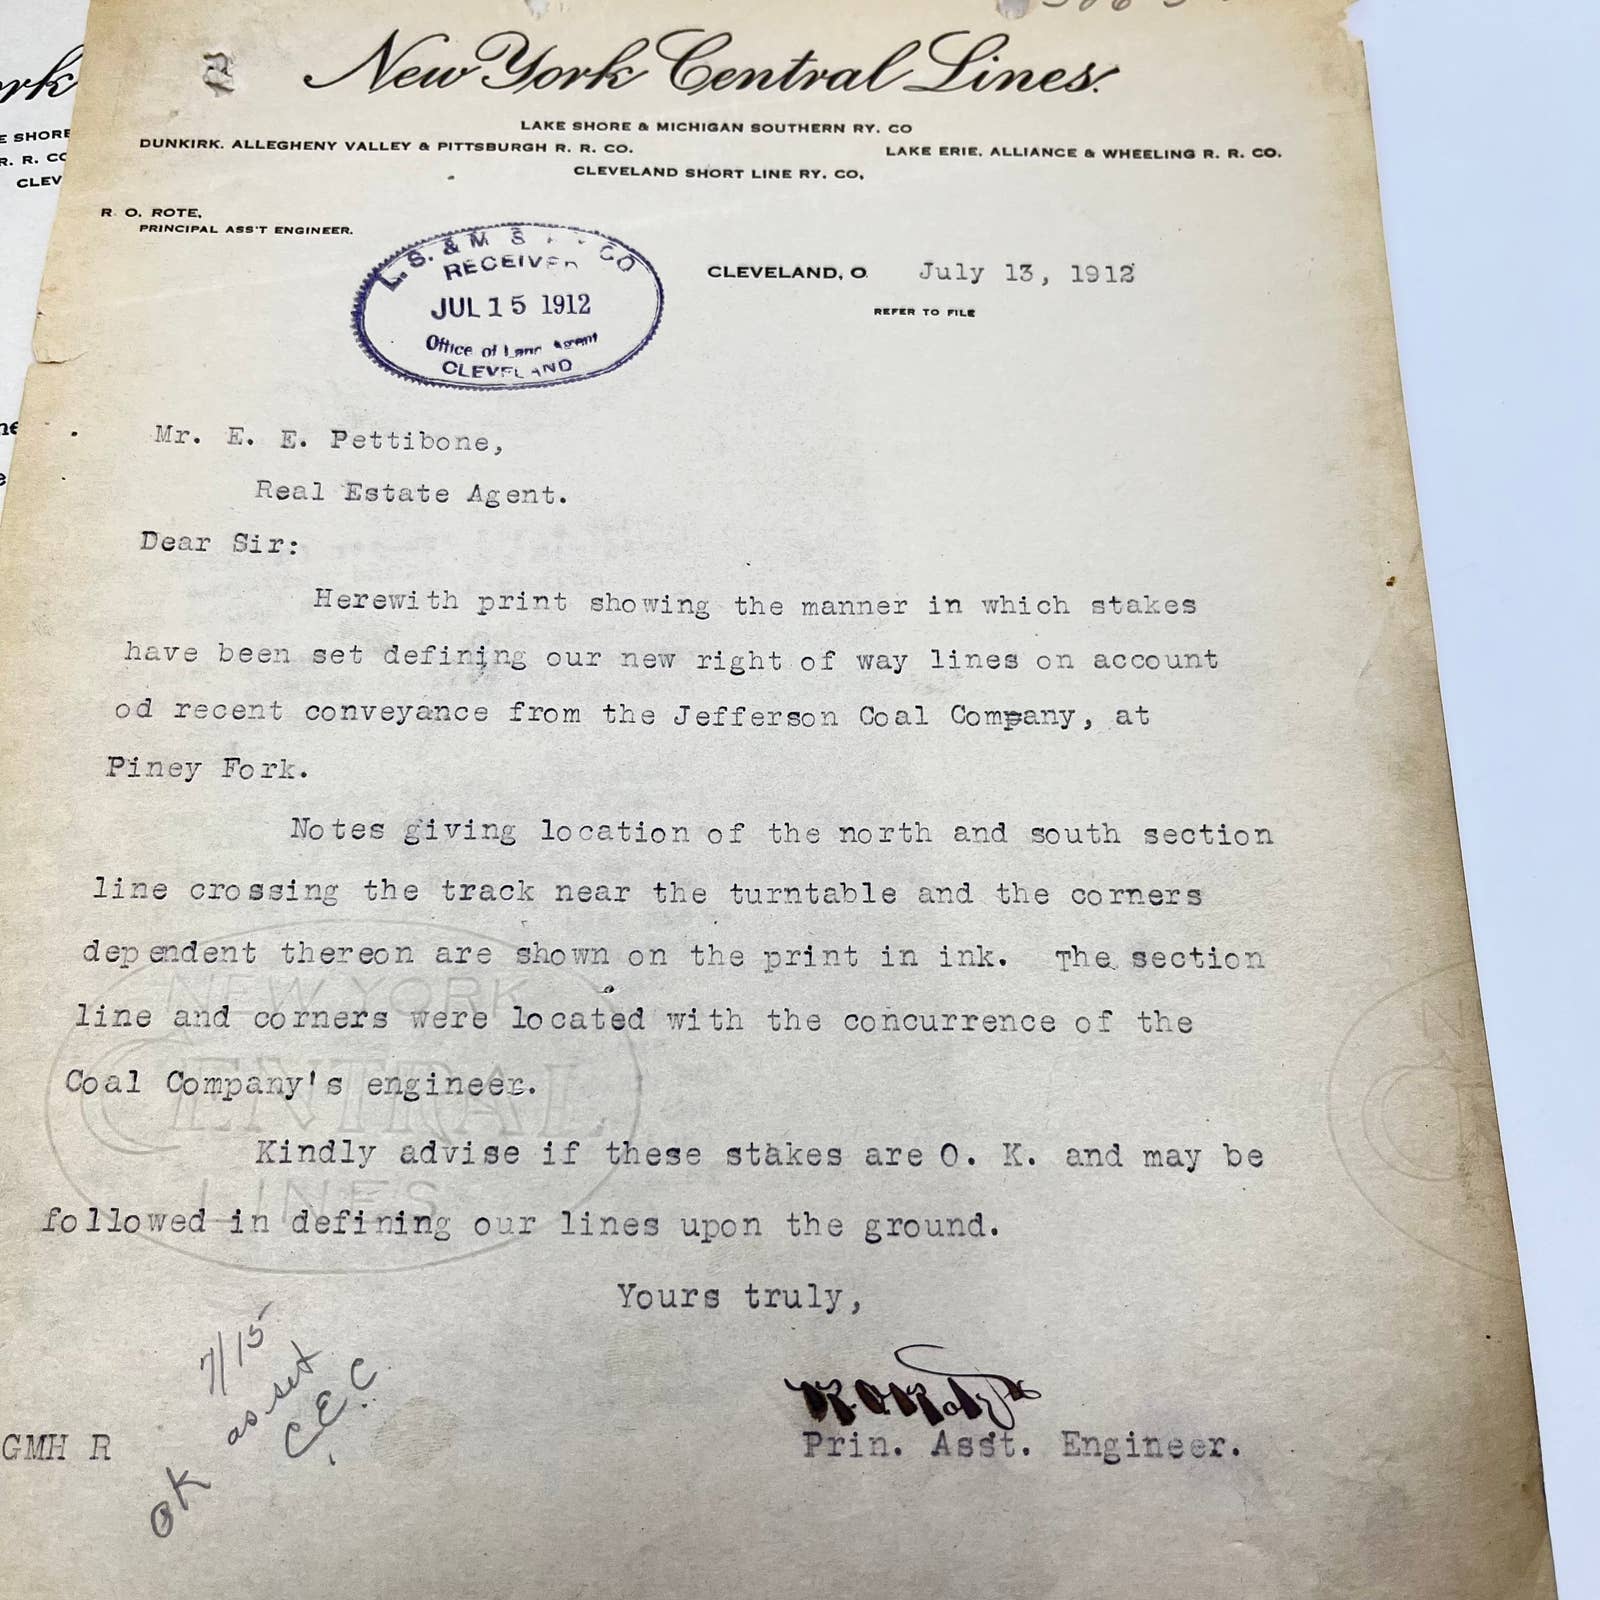 New York Central Lines.
LAKE SHORE & MICHIGAN SOUTHERN RY. CO
DUNKIRK. ALLEGHENY VALLEY & PITTSBURGH R. R. CO.
LAKE ERIE, ALLIANCE & WHEELING R. R. CO.
CLEVELAND SHORT LINE RY. CO,
R. O. ROTE,
PRINCIPAL ASS'T ENGINEER.
L. S. & M S CO
RECEIVED
JUL 15 1912
Office of Land Agent
CLEVELAND
CLEVELAND, O. July 13, 1912
REFER TO FILE
Mr. E. E. Pettibone,
Real Estate Agent.
Dear Sir:
Herewith print showing the manner in which stakes
have been set defining our new right of way lines on account
od recent conveyance from the Jefferson Coal Company, at
Piney Fork.
Notes giving location of the north and south section
line crossing the track near the turntable and the corners
dependent thereon are shown on the print in ink. The section
line and corners were located with the concurrence of the
Coal Company's engineer.
Kindly advise if these stakes are O. K. and may be
followed in defining our lines upon the ground.
Yours truly,
R.O. Rote
Prin. Asst. Engineer.
GMH R
7/15
OK as set
C.E.C.
NEW YORK
CENTRAL
LINES
ork
E SHORE
R. R. CO
CLEV